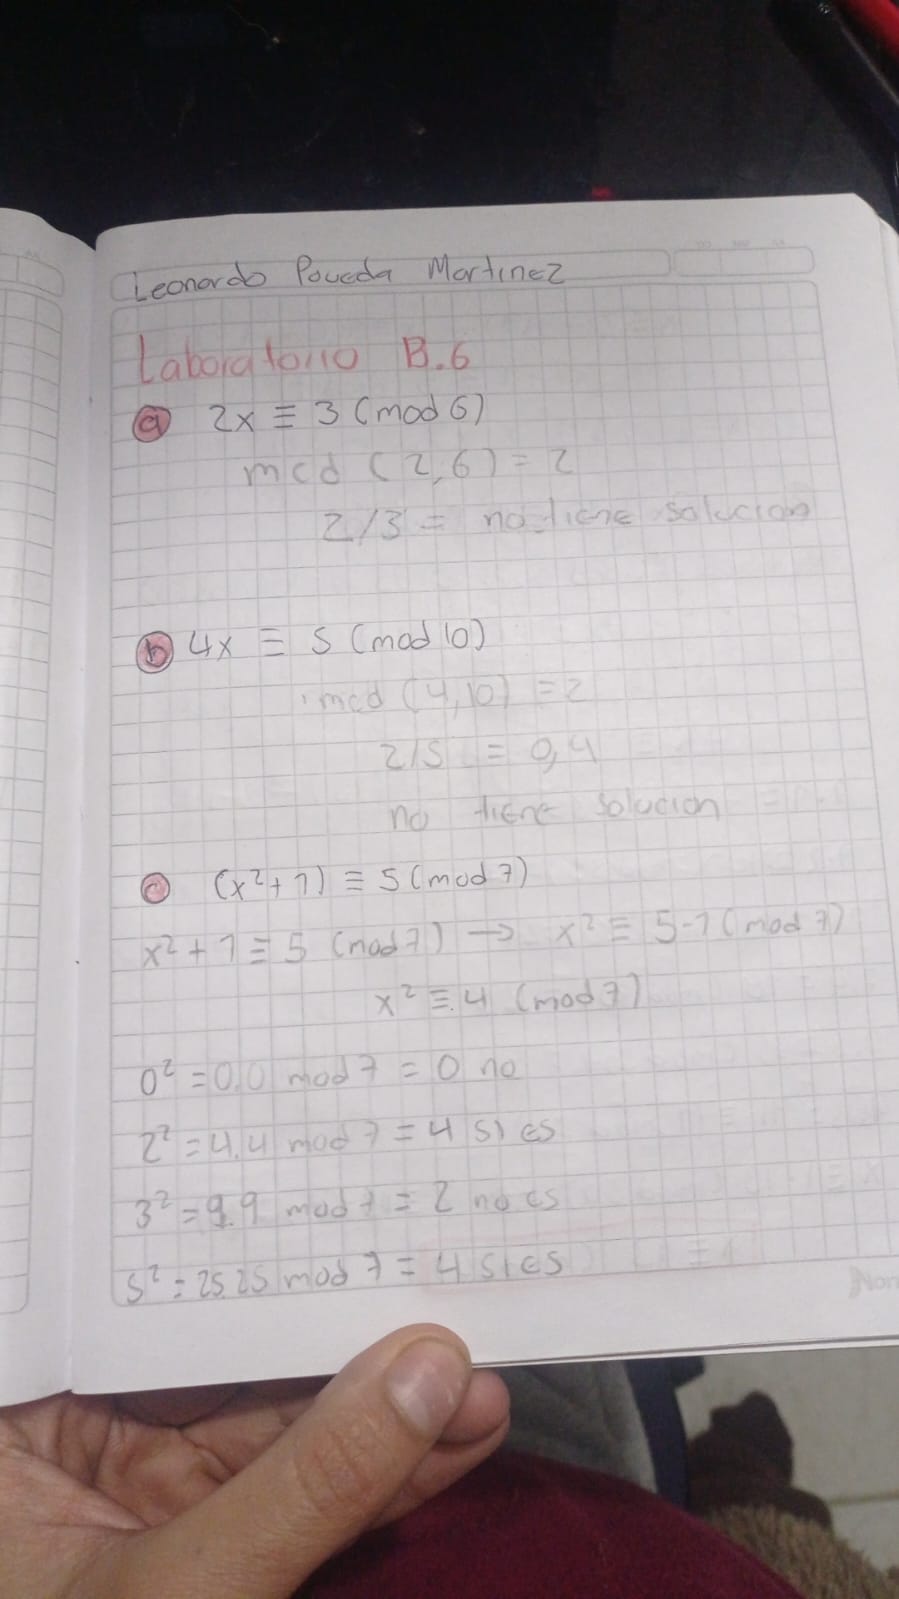 Leonardo Poveda Martinez
Laboratorio B.6
a 2x ≡ 3 (mod 6)
mcd (2,6) = 2
2/3 = no tiene solucion
b 4x ≡ 5 (mod 10)
mcd (4,10) = 2
2/5 = 0,4
no tiene solucion
c (x²+1) ≡ 5 (mod 7)
x²+1 ≡ 5 (mod 7) → x² ≡ 5-1 (mod 7)
x² ≡ 4 (mod 7)
0² = 0.0 mod 7 = 0 no
2² = 4.4 mod 7 = 4 si es
3² = 9.9 mod 7 = 2 no es
5² = 25.25 mod 7 = 4 si es